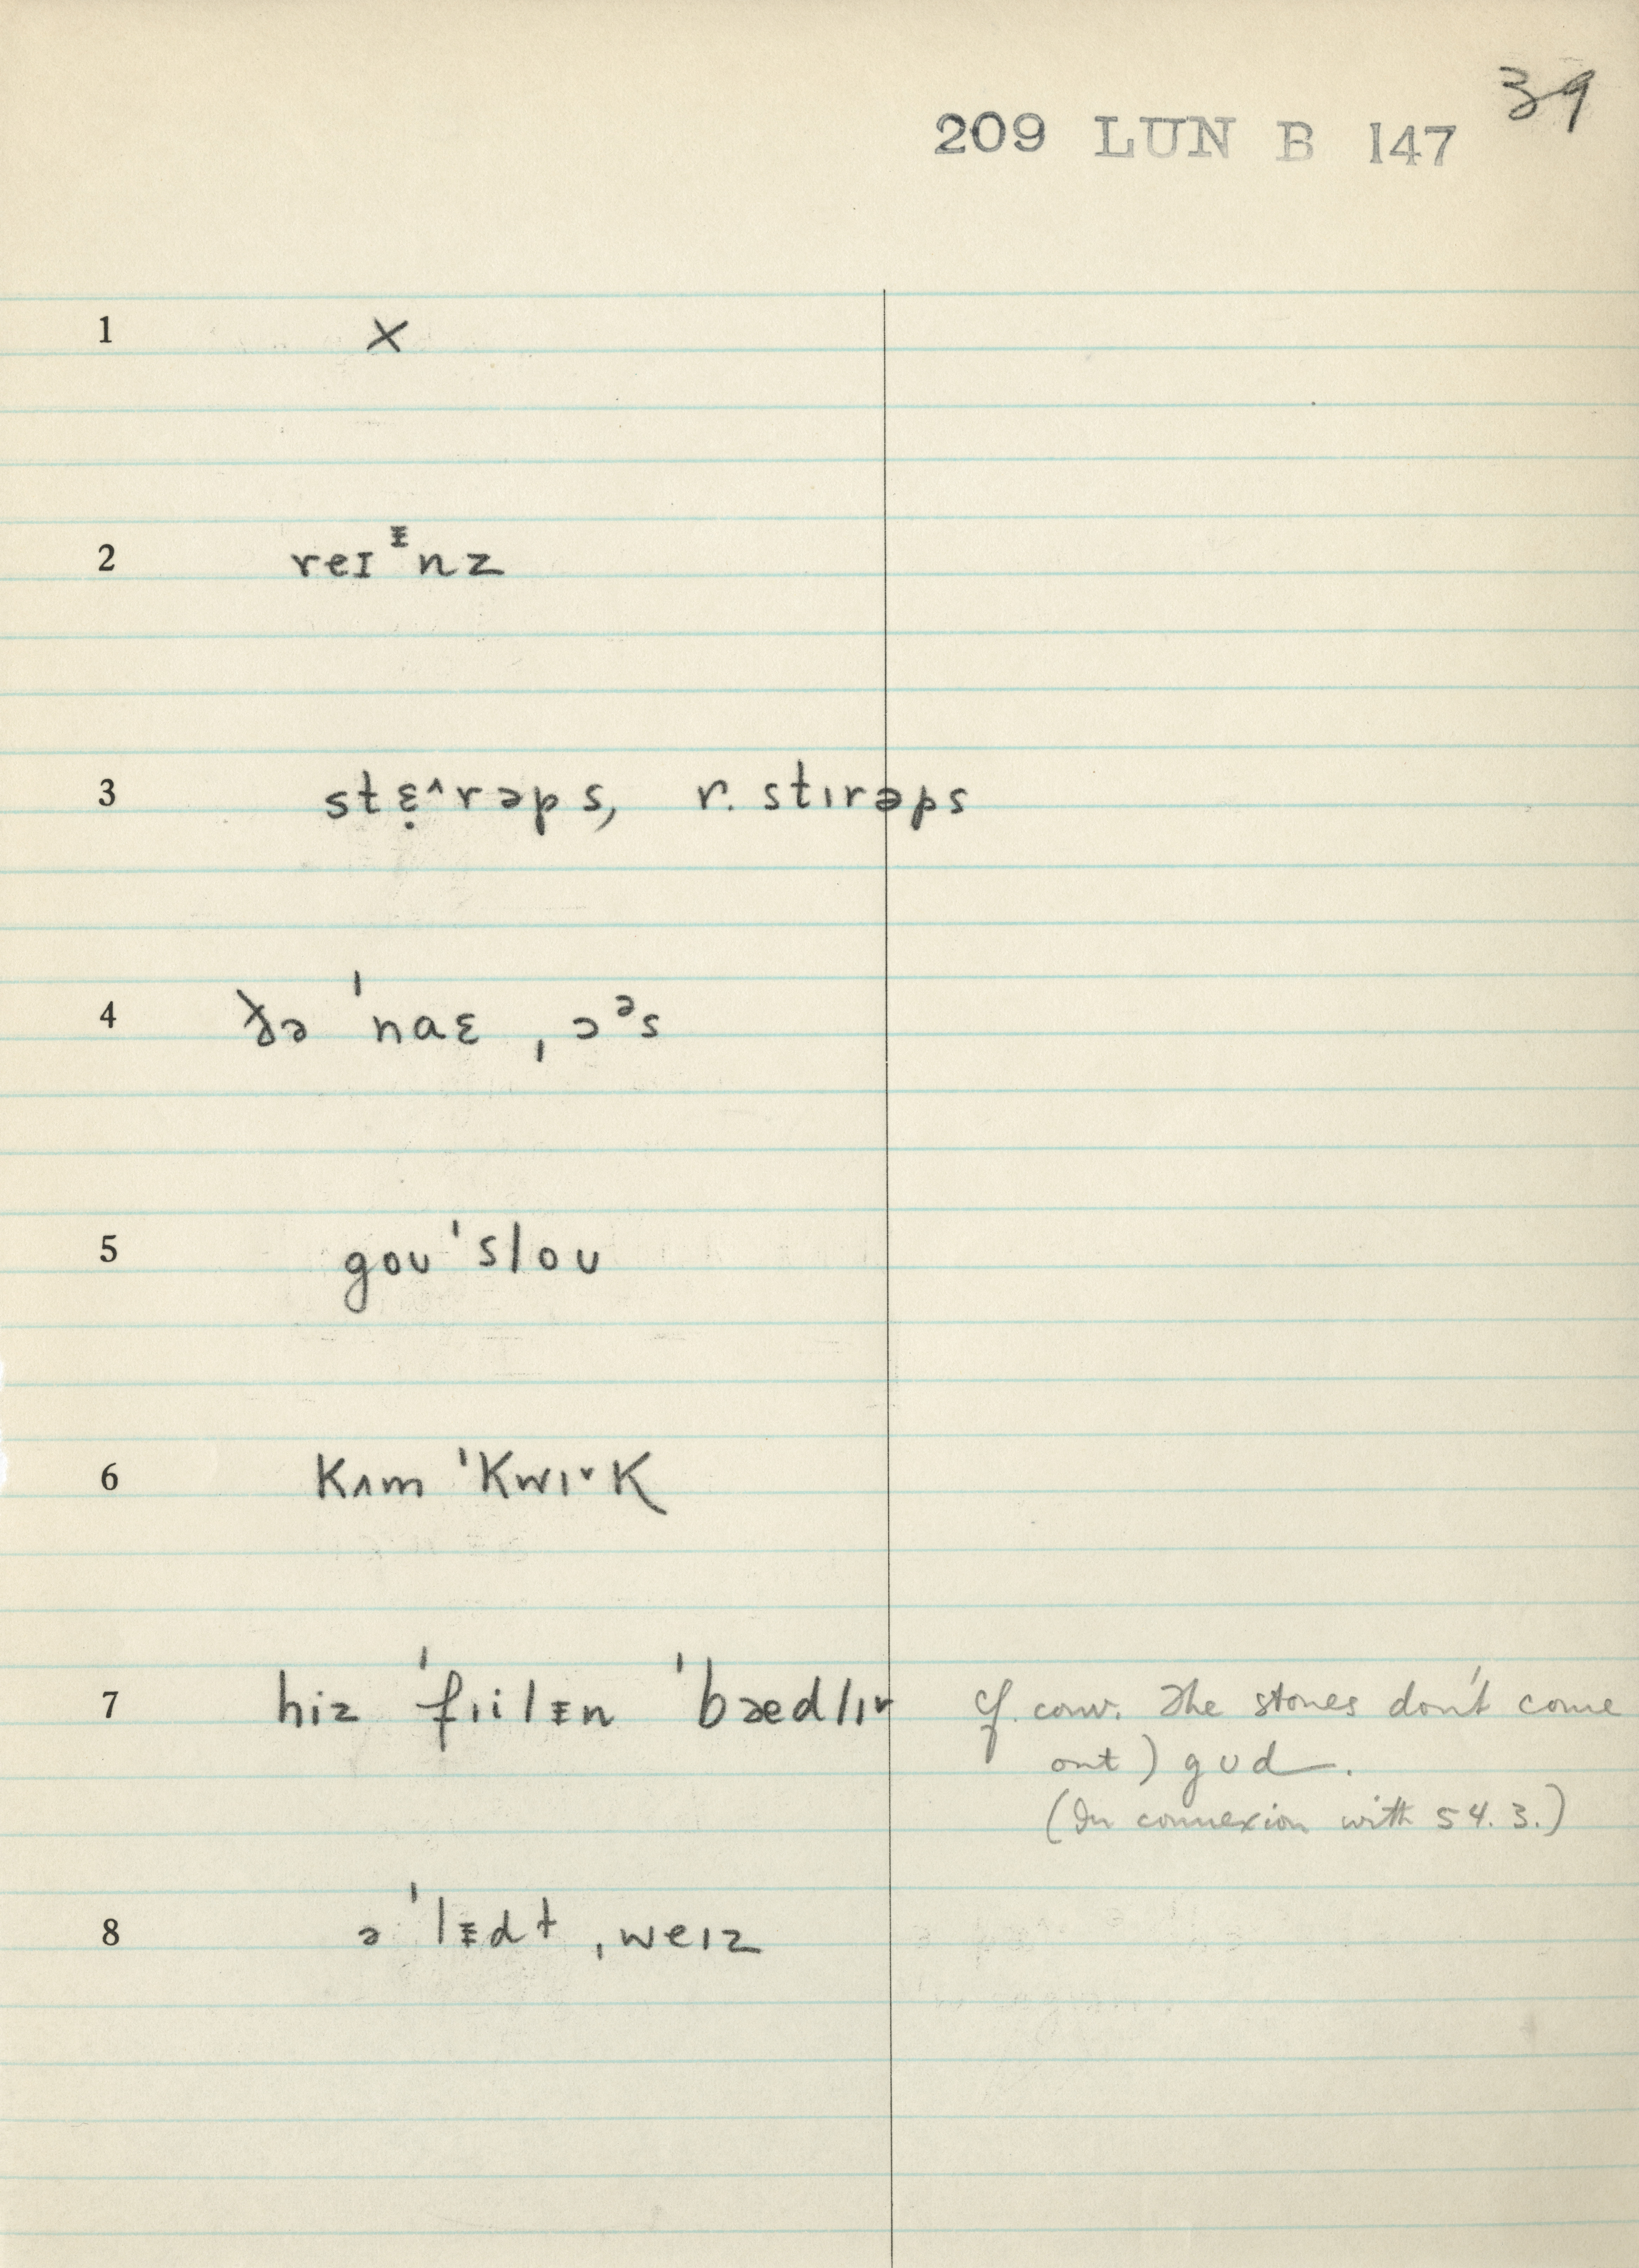 39
209 LUN B 147
1 ×
2 reɪᵻnz
3 stɛ̣^rəps, r. stɪrəps
4 ðə ˈnaɛ ˌɔᵊs
5 goʊ ˈsloʊ
6 kʌm ˈkwɪˇk
7 hiz ˈfɪilᵻn ˈbædlɪˇ cf. conv. The stones don't come
out) gʊd.
(In connexion with 54.3.)
8 ə ˈlᵻdt̬ ˌweɪz